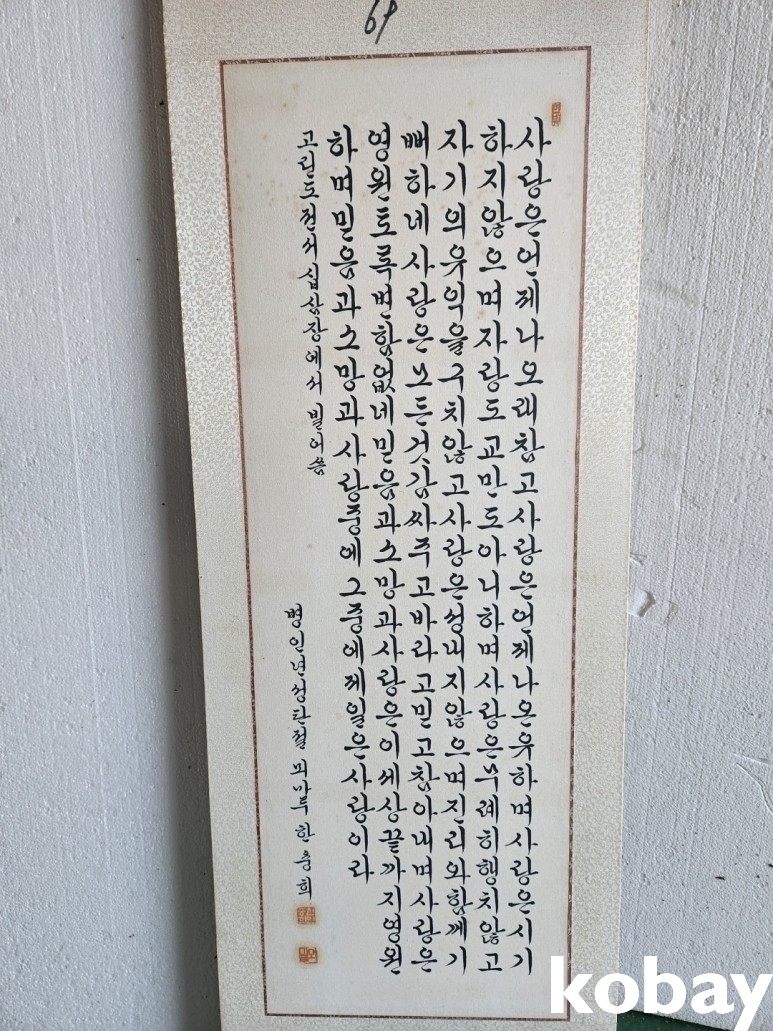 69
사랑은언제나오래참고사랑은언제나온유하며사랑은시기
하지않으며자랑도교만도아니하며사랑은무례히행치않고
자기의유익을구치않고사랑은성내지않으며진리와함께기
뻐하네사랑은모든것감싸주고바라고믿고참아내며사랑은
영원토록변함없네믿음과소망과사랑은이세상끝까지영원
하며믿음과소망과사랑중에그중에제일은사랑이라
고린도전서십삼장에서빌어씀
병인년성탄절 뫼마루 한충희
kobay